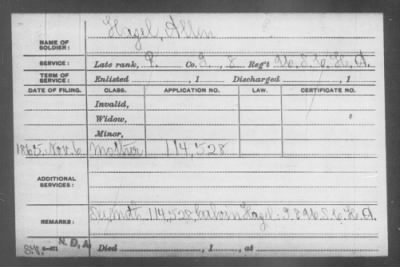 NAME OF SOLDIER: Hazel, Allen
SERVICE: Late rank, P. Co. I. 8 Reg't 96, S. C. H. A.
TERM OF SERVICE: Enlisted , 1 Discharged , 1
DATE OF FILING. CLASS. APPLICATION NO. LAW. CERTIFICATE NO.
Invalid,
Widow,
Minor,
1865. Nov. 6 Mother 114,528
ADDITIONAL SERVICES:
REMARKS: 114,528 Hazel I. 8 96 S. C. H. A.
N. D. A. Died , 1 , at